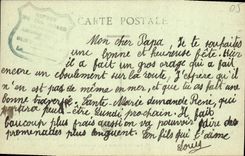 CARTE POSTALE
03
Mon cher Papa, Je te souhaites
une bonne et heureuse fête. Hier
il a fait un gros orage qui a fait
encore un éboulement sur la route. J'espère qu'il
n'en est pas de même en mer, et que tu as fait une
bonne traversée. Tante Marie demande René, qui
partira peut être Lundi prochain. Il fait
beaucoup plus frais aussi on va pouvoir faire des
promenades plus longues. Ton fils qui t'aime
Louis